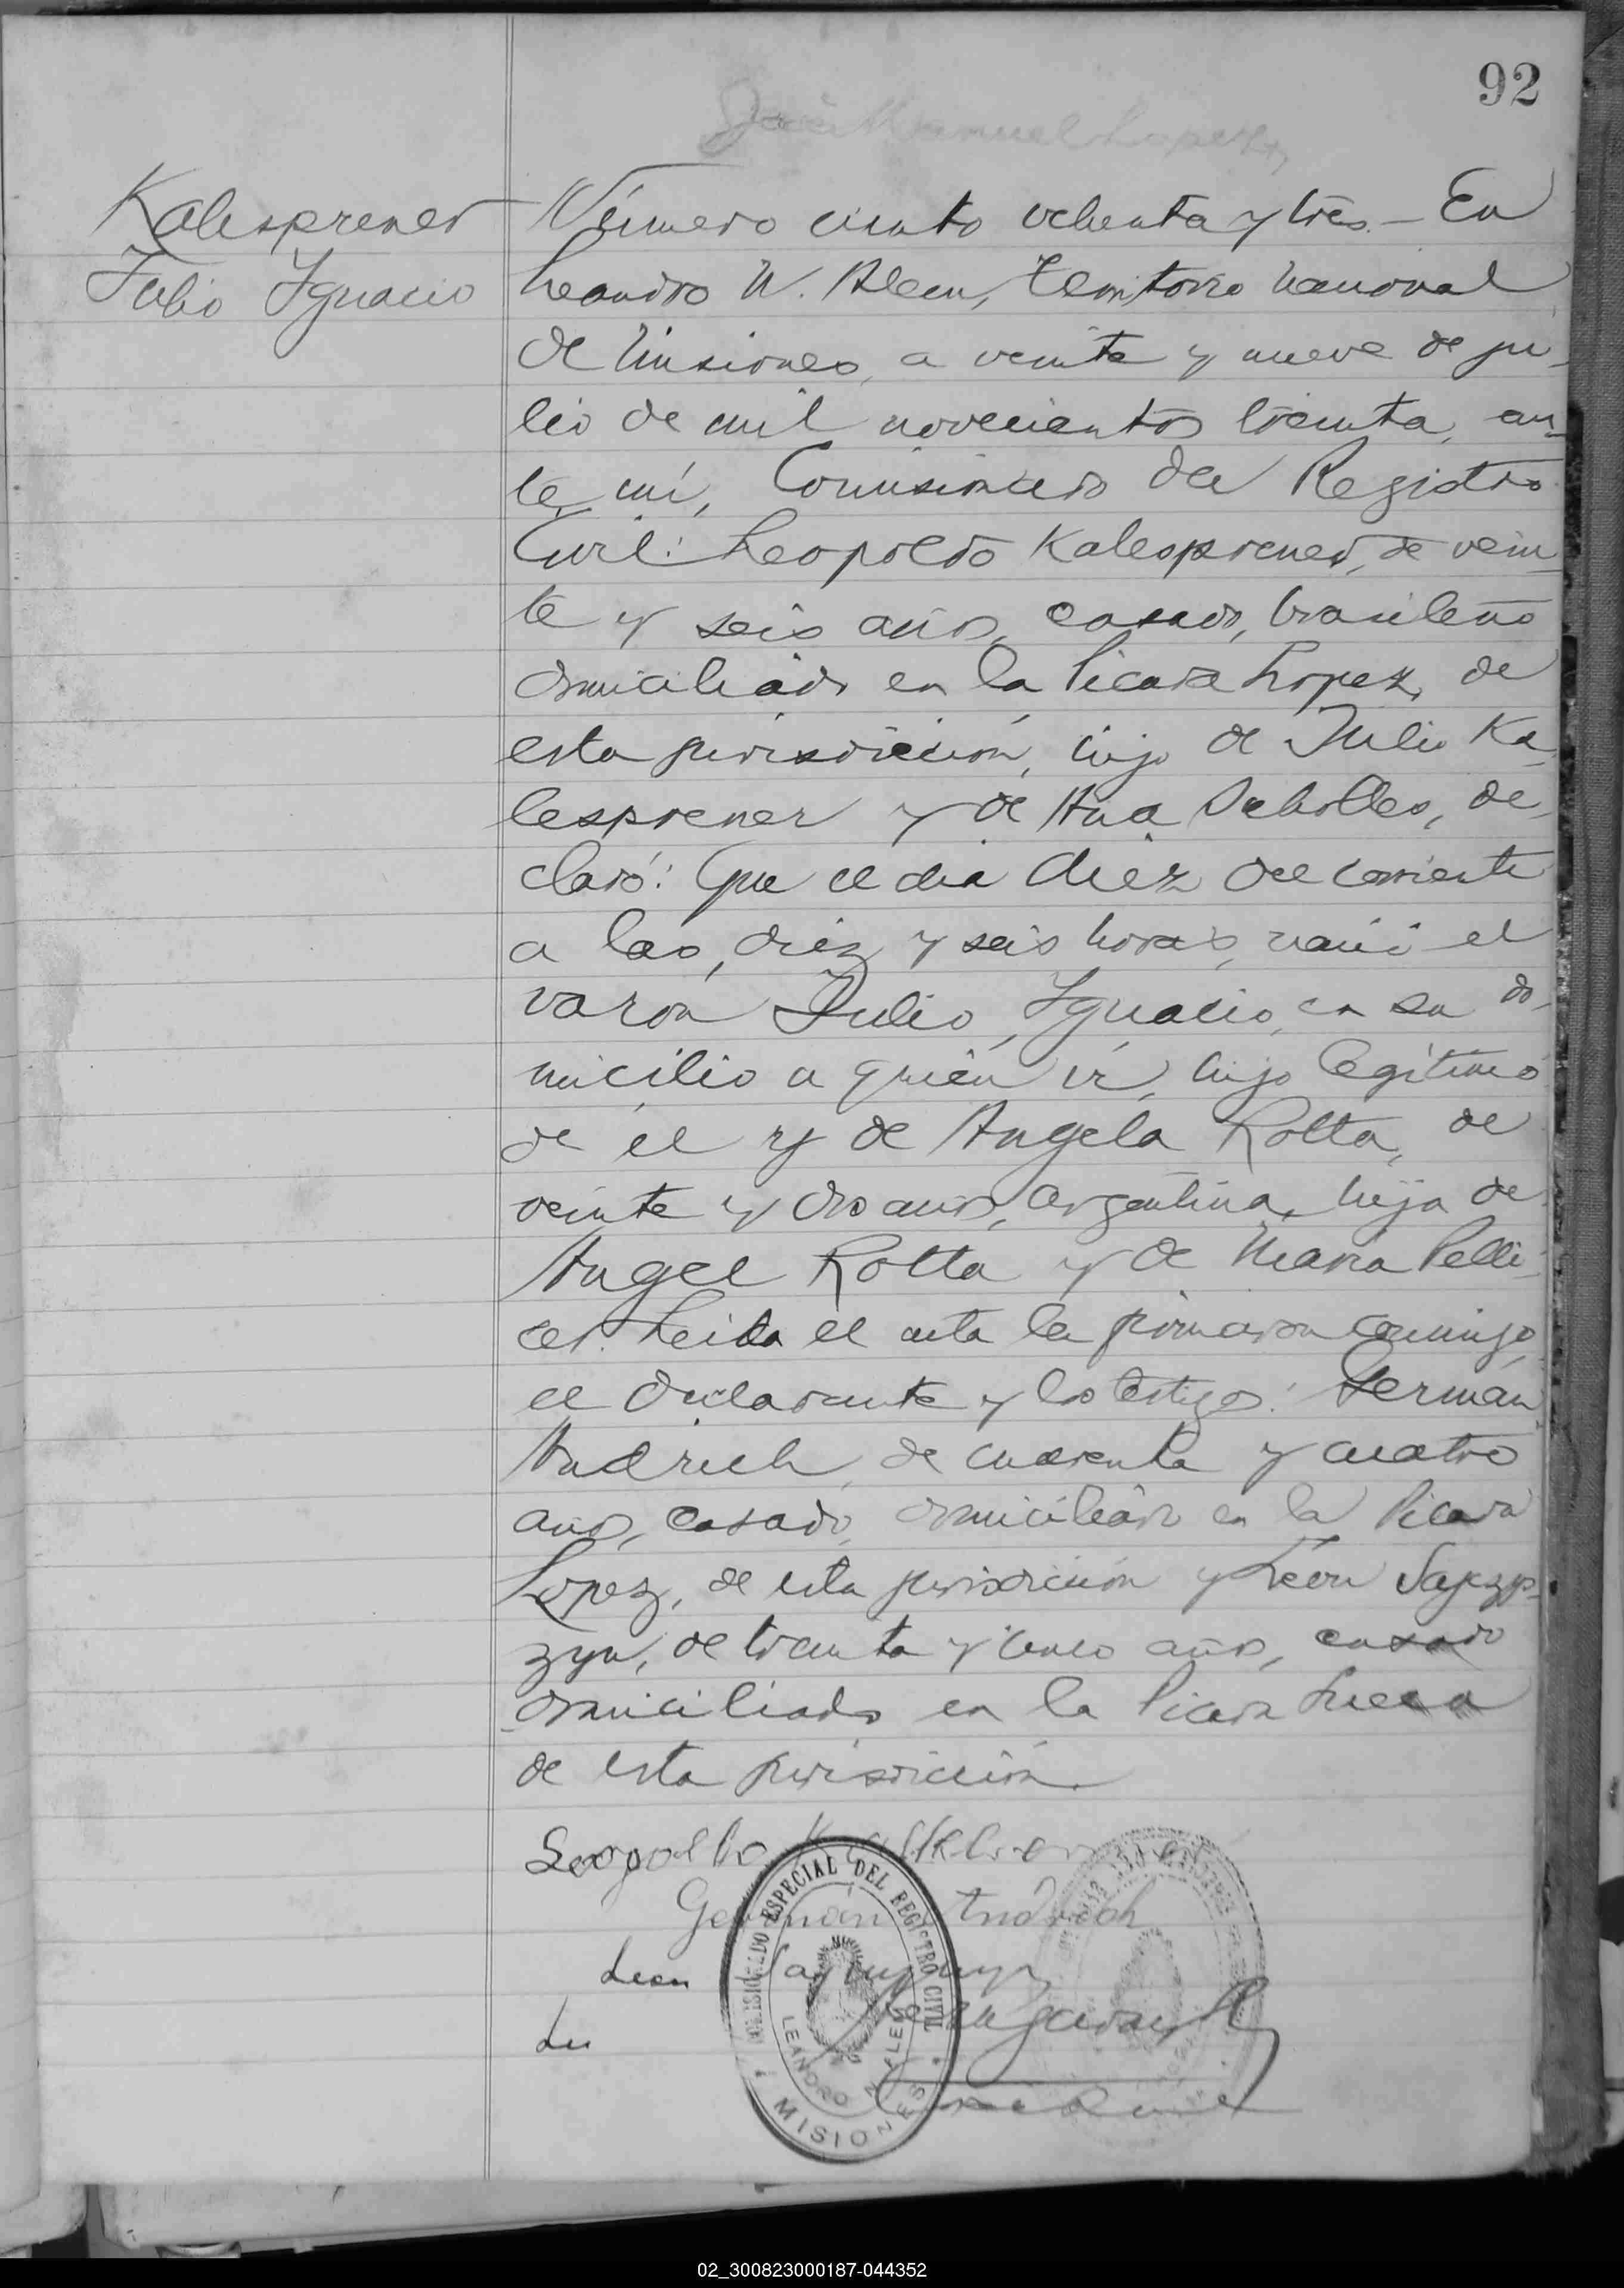 92
José Manuel Lopez
Kalesprener
Julio Ignacio
Número ciento ochenta y tres.- En
Leandro N. Alem, Territorio Nacional
de Misiones, a veinte y nueve de ju-
lio de mil novecientos treinta, an-
te mí, Comisionado del Registro
Civil: Leopoldo Kalesprener, de vein-
te y seis años, casado, brasileño
domiciliado en la Picada Lopez, de
esta jurisdicción, hijo de Julio Ka-
lesprener y de Ana Scholles, de-
claró: Que el día diez del corriente
a las, diez y seis horas, nació el
varón Julio Ignacio, en su do-
micilio a quién vi, hijo legítimo
de el y de Angela Rotta, de
veinte y dos años, argentina, hija de
Angel Rotta y de María Pelli-
cer. Leida el acta la firmaron conmigo,
el declarante y los testigos: German
Andrich, de cuarenta y cuatro
años, casado, domiciliado en la Picada
Lopez, de esta jurisdicción y León
zyn, de treinta y cinco años, casado
domiciliado en la Picada
de esta jurisdicción.
Leopoldo
Germán Andrich
Leon
COMISIONADO ESPECIAL DEL REGISTRO CIVIL
LEANDRO N. ALEM
MISIONES
02_300823000187-044352